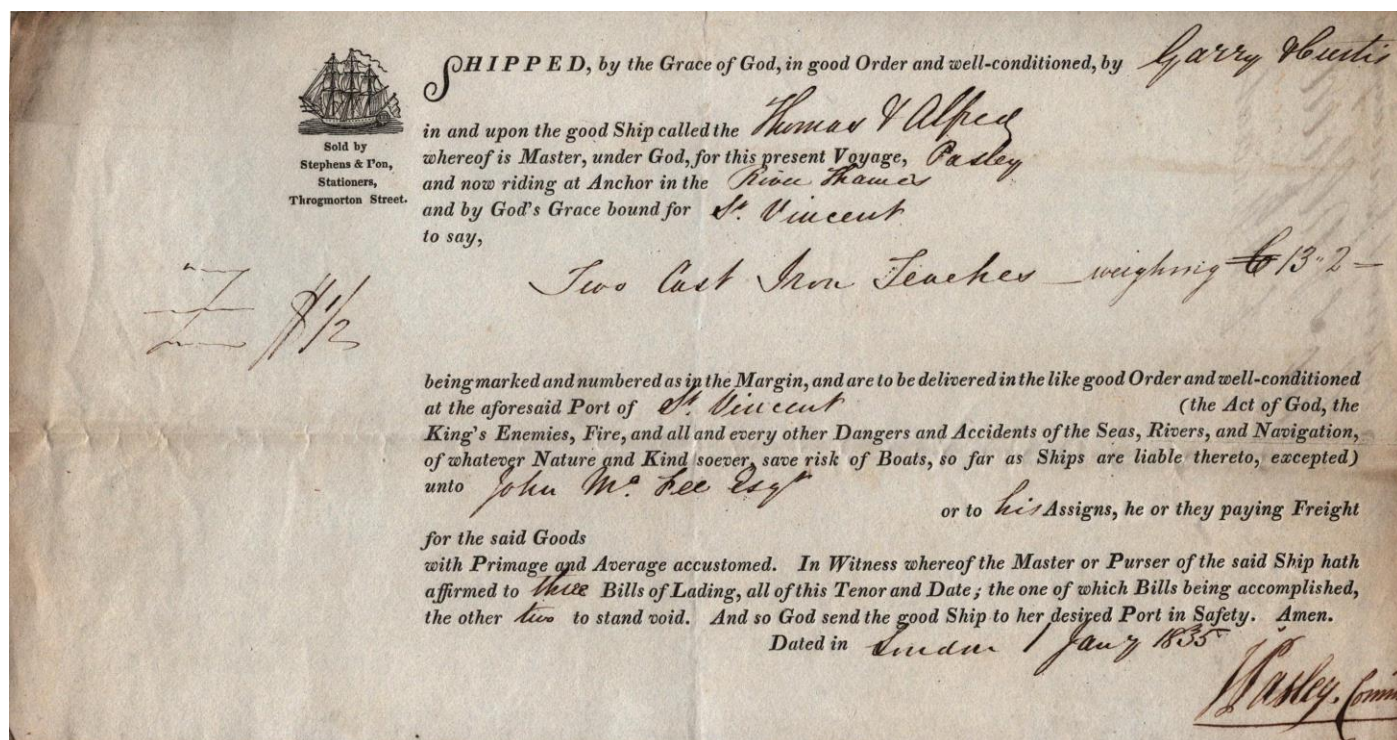 SHIPPED, by the Grace of God, in good Order and well-conditioned, by Garry & Curtis
in and upon the good Ship called the Thomas & Alfred
whereof is Master, under God, for this present Voyage, Pasley
and now riding at Anchor in the River Thames
and by God's Grace bound for St. Vincent
to say,
Sold by
Stephens & Pon,
Stationers,
Throgmorton Street.
Two Cast Iron Teaches weighing 13"2
1/2
being marked and numbered as in the Margin, and are to be delivered in the like good Order and well-conditioned
at the aforesaid Port of St. Vincent (the Act of God, the
King's Enemies, Fire, and all and every other Dangers and Accidents of the Seas, Rivers, and Navigation,
of whatever Nature and Kind soever, save risk of Boats, so far as Ships are liable thereto, excepted)
unto John Mc. Fee Esqr
or to his Assigns, he or they paying Freight
for the said Goods
with Primage and Average accustomed. In Witness whereof the Master or Purser of the said Ship hath
affirmed to three Bills of Lading, all of this Tenor and Date; the one of which Bills being accomplished,
the other two to stand void. And so God send the good Ship to her desired Port in Safety. Amen.
Dated in London 1 Jany 1835
Pasley.